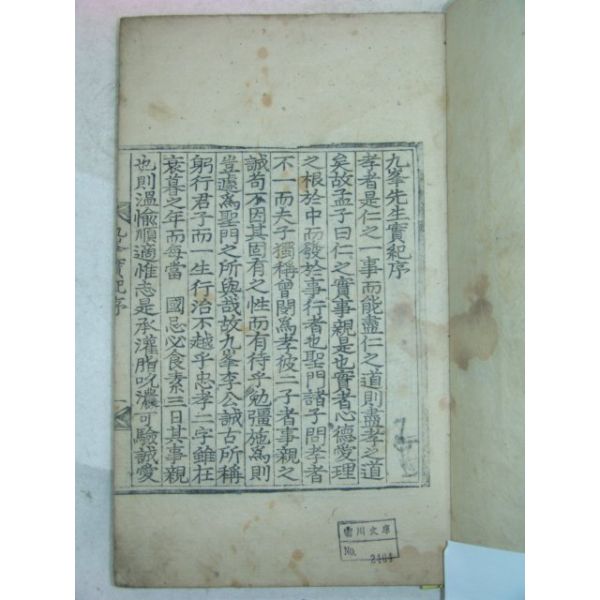 九峯先生實紀序
孝者是仁之一事而能盡仁之道則盡孝之道
矣故孟子曰仁之實事親是也實者心德愛理
之根於中而發於事行者也聖門諸子問孝者
不一而夫子獨稱曾閔爲孝彼二子者事親之
誠苟不因其固有之性而有待乎勉彊施爲則
豈遽爲聖門之所與哉故九峯李公誠古所稱
躬行君子而一生行治不越乎忠孝二字雖在
衰暮之年而每當 國忌必食素三日其事親
也則溫愉順適惟志是承灌脂吮濃可驗誠愛
九峯實紀序
一
雪川文庫
No. 2464